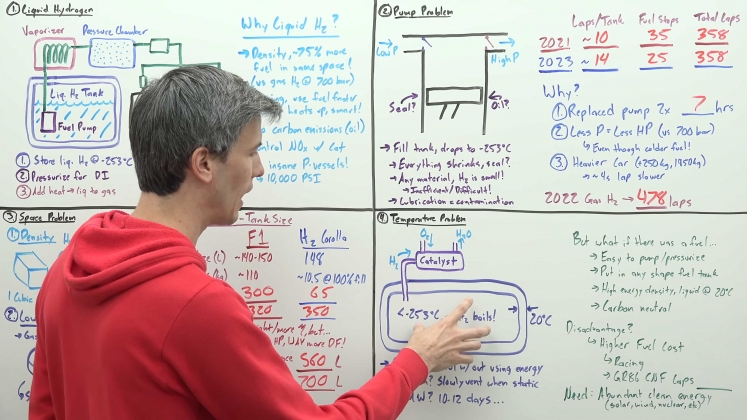 ① Liquid Hydrogen
Vaporizer
Pressure Chamber
Liq. H₂ Tank
Fuel Pump
① Store liq. H₂ @ -253°C
② Pressurize for DI
③ Add heat → liq to gas
Why Liquid H₂?
→ Density, ~75% more
fuel in same space!
(vs gas H₂ @ 700 bar)
use fuel
carbon emissions (oil)
NOx w/ Cat
insane P. vessels!
10,000 PSI
② Pump Problem
Low P
High P
Seal?
Oil?
→ Fill tank, drops to -253°C
→ Everything shrinks, seal?
→ Any material, H₂ is small!
↳ Inefficient/Difficult!
→ Lubrication = contamination
Laps/Tank Fuel Stops Total Laps
2021 ~10 35 358
2023 ~14 25 358
Why?
① Replaced pump 2x 7 hrs
② Less P = Less HP (vs 700 bar)
↳ Even though colder fuel!
③ Heavier Car (+250kg, 1950kg)
→ ~4s lap slower
2022 Gas H₂ → 478 laps
③ Space Problem
① Density
1 Cubic
② Low
- Tank Size
F1 H₂ Corolla
~140-150 148
~110 ~10.5 @ 100% fill
300 65
320 350
HP, DF!
560 L
700 L
④ Temperature Problem
O₂ H₂O
H₂
Catalyst
<-253°C boils!
20°C
w/out using energy
Slowly vent when static
10-12 days...
But what if there was a fuel...
→ Easy to pump/pressurize
→ Put in any shape fuel tank
→ High energy density, liquid @ 20°C
→ Carbon neutral
Disadvantage?
↳ Higher Fuel Cost
↳ Racing
→ GR86 CNF Laps
Need: Abundant clean energy
(solar, wind, nuclear, etc)